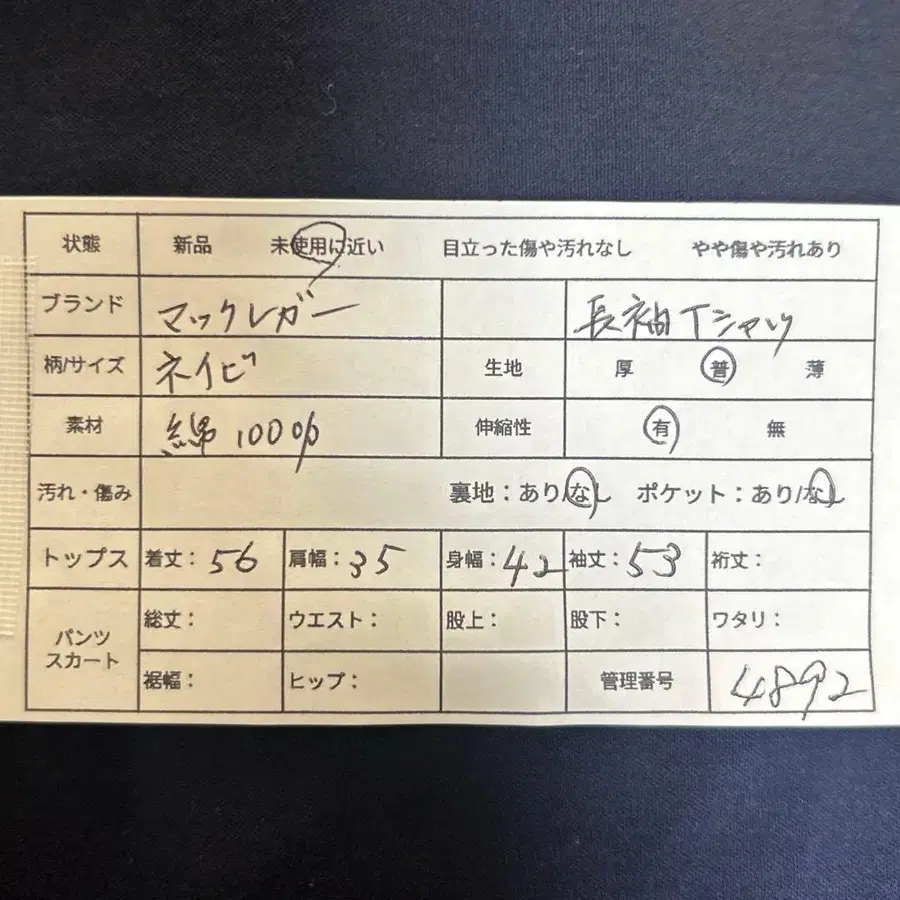 状態 新品 未使用に近い 目立った傷や汚れなし やや傷や汚れあり
ブランド マックレガー 長袖Tシャツ
柄/サイズ ネイビ 生地 厚 普 薄
素材 綿100% 伸縮性 有 無
汚れ・傷み 裏地：あり/なし ポケット：あり/なし
トップス 着丈：56 肩幅：35 身幅：42 袖丈：53 裄丈：
パンツ スカート 総丈： ウエスト： 股上： 股下： ワタリ：
裾幅： ヒップ： 管理番号 4892